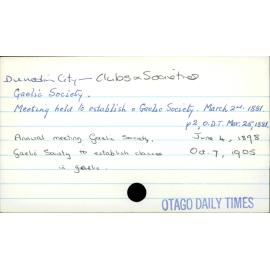 Dunedin City - Clubs & Societies
Gaelic Society.
Meeting held to establish a Gaelic Society. March 2nd. 1881.
p2, O.D.T. Mar. 25, 1881.
Annual meeting Gaelic Society. June 4, 1898
Gaelic Society to establish classes Oct. 7, 1905
in gaelic.
OTAGO DAILY TIMES